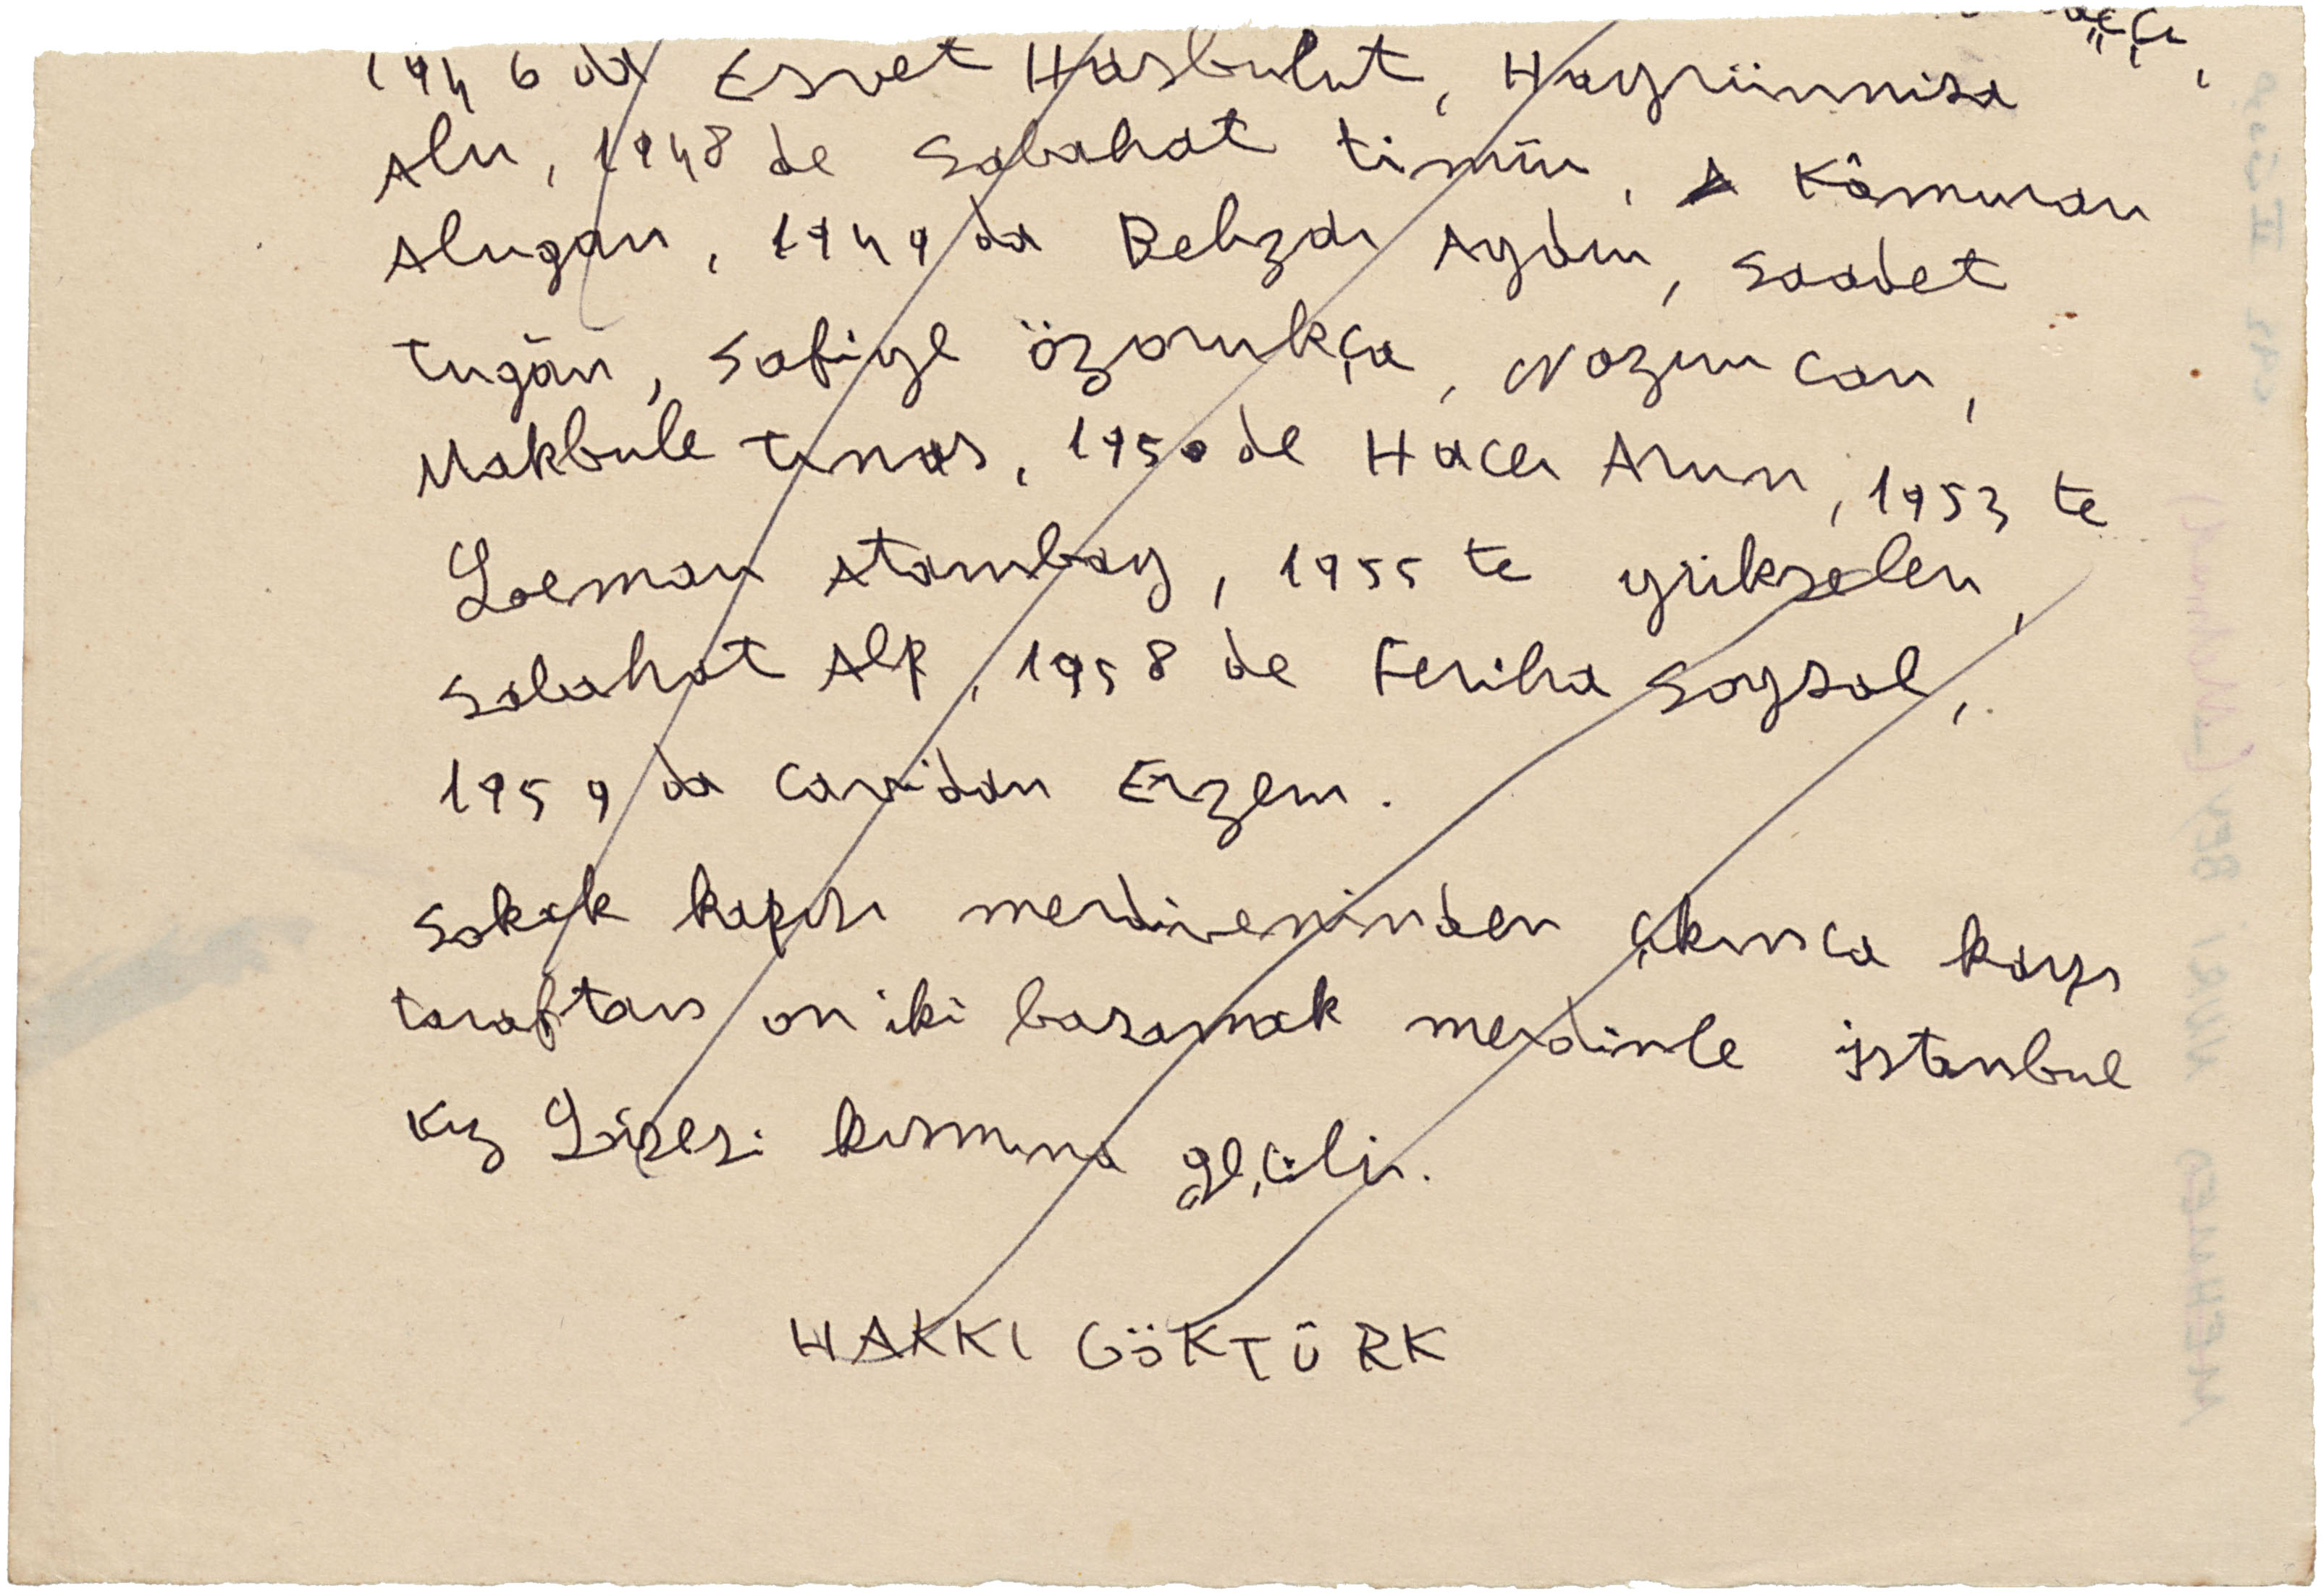 1946 da Esvet Hasbulut, Hayrünnisa
Alu, 1948 de Sabahat timür, Kâmuran
Alugan, 1949 da Behzdı Aydın, Saadet
tugân, Safiye özorukça, Nazım can,
Makbule tınas, 1950 de Hacer Arun, 1953 te
Loeman Atambay, 1955 te yükselen,
Sabahat Alp, 1958 de Feriha Soysal,
1959 da Cavidan Erzem.
Sokak kapısı merdiveninden çıkınca karşı
taraftan on iki basamak merdinle istanbul
Kız Lisesi kısmına geçilir.
HAKKI GÖKTÜRK